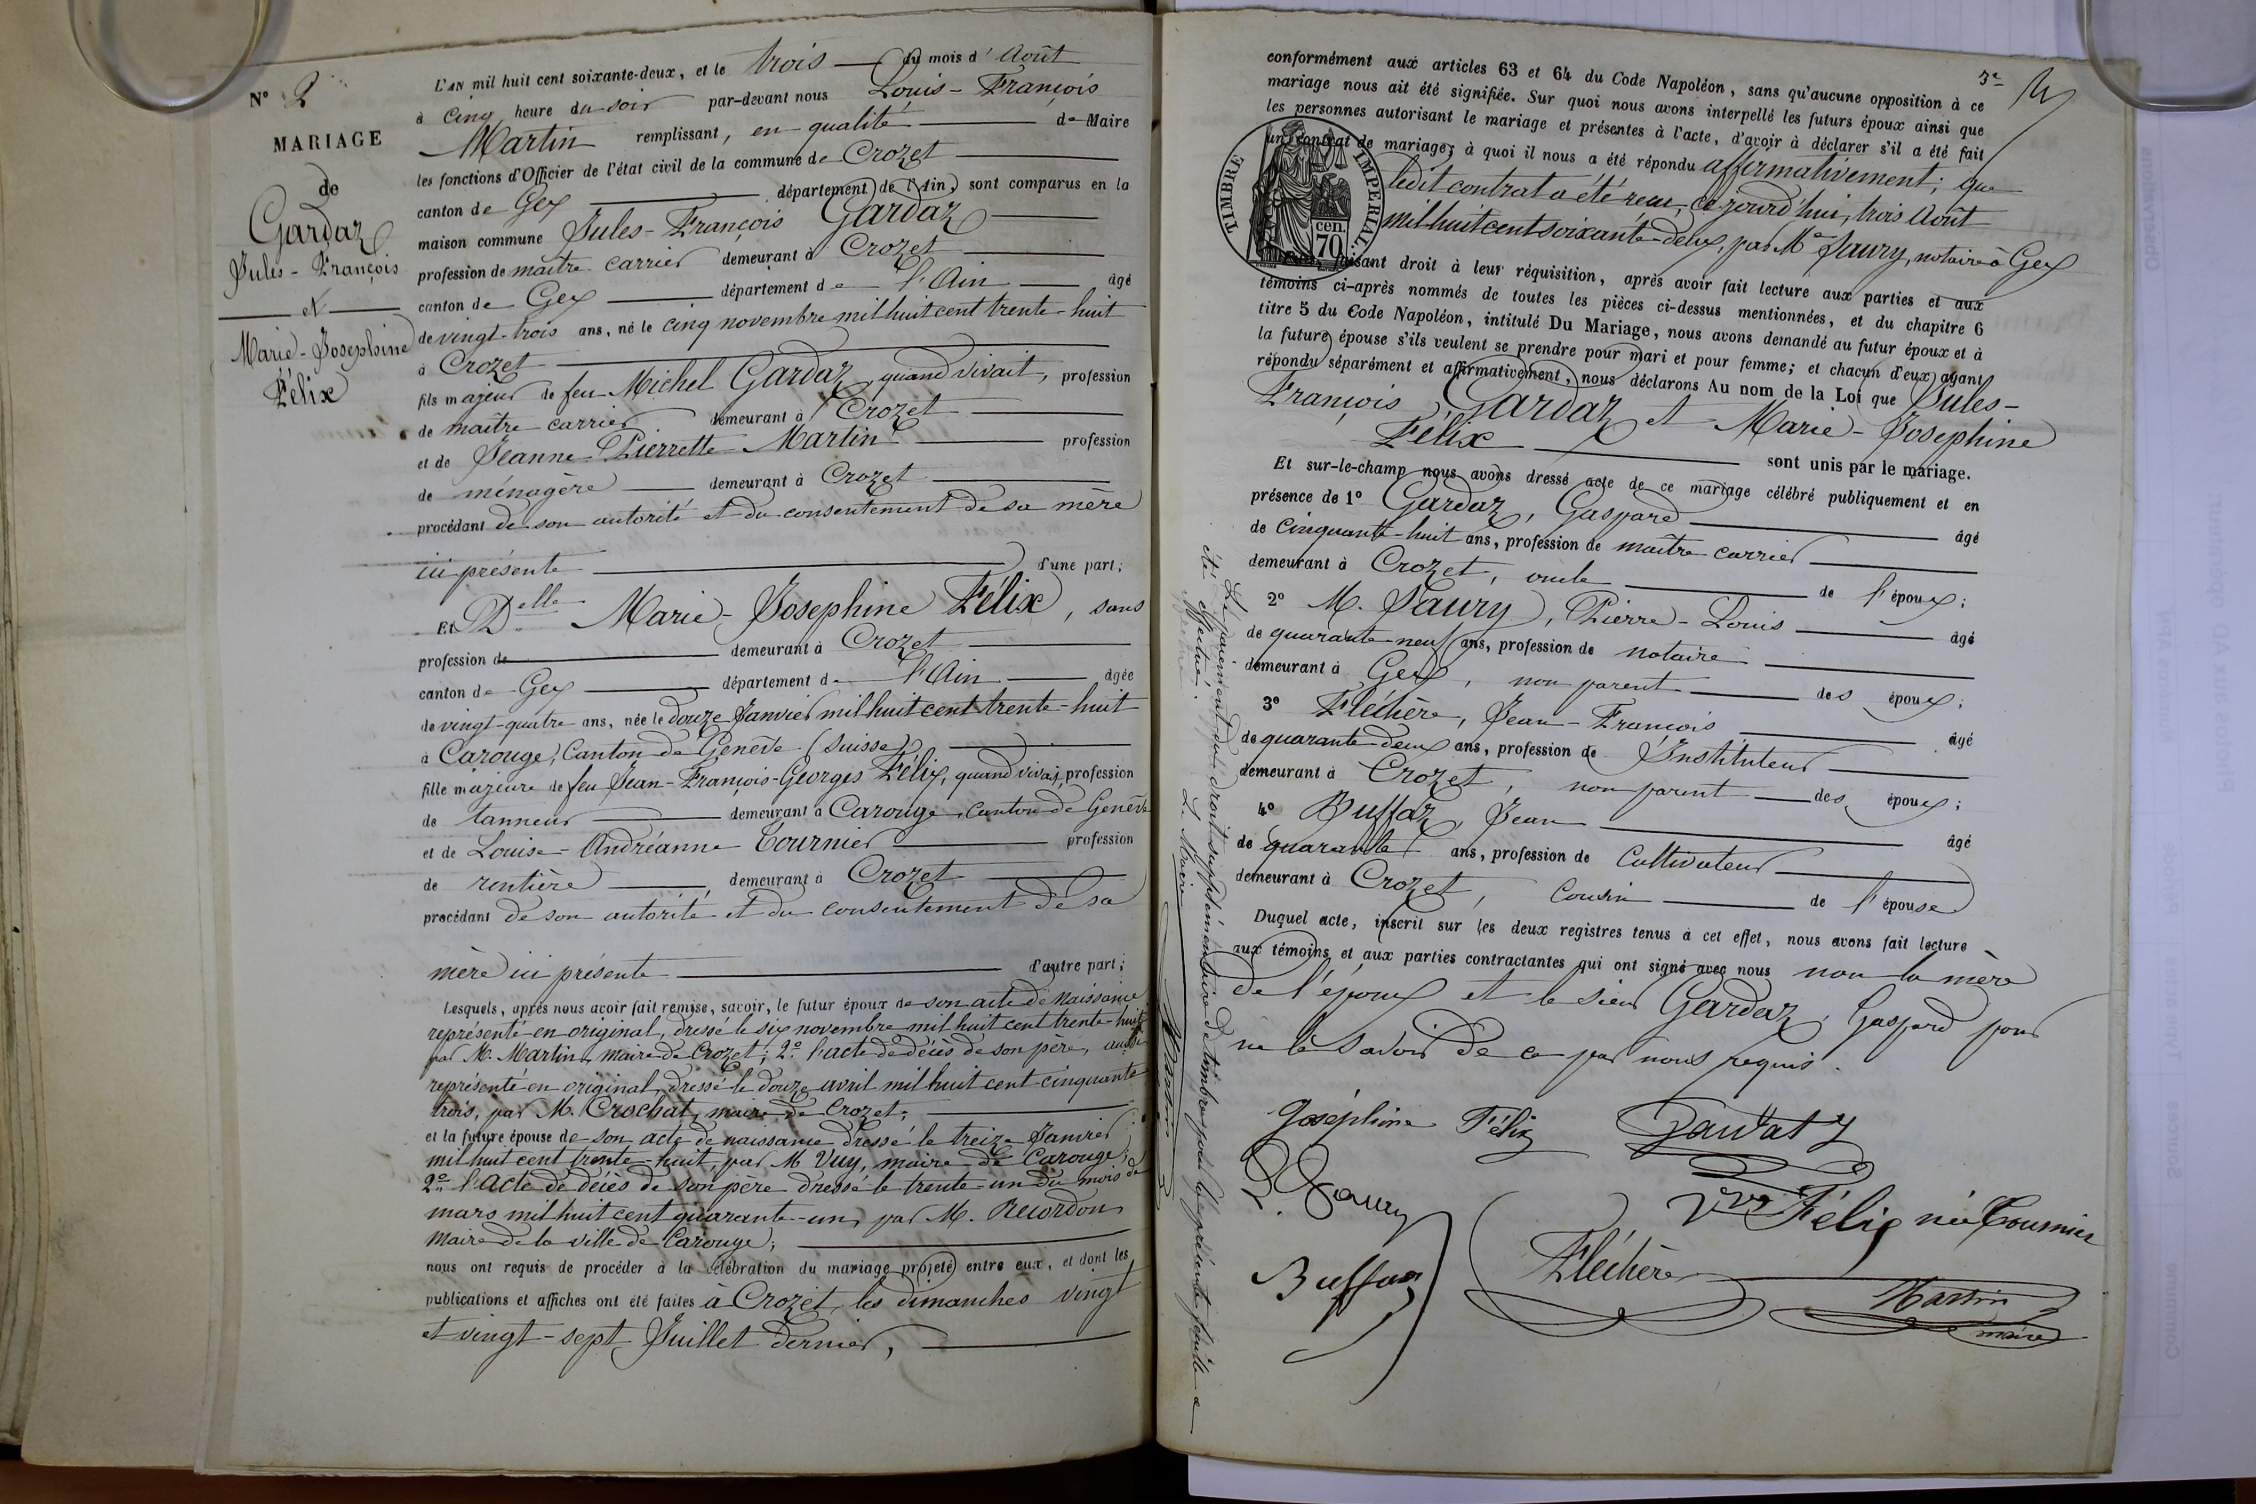 N° 2
MARIAGE
de
Gardaz
Jules-François
et
Marie-Josephine
Félix
L'AN mil huit cent soixante-deux, et le trois du mois d'Août
à cinq heure du soir par-devant nous Louis-François
Martin remplissant, en qualité de Maire
les fonctions d'Officier de l'état civil de la commune de Crozet
canton de Gex département de l'Ain, sont comparus en la
maison commune Jules-François Gardaz
profession de maître carrier demeurant à Crozet
canton de Gex département de l'Ain âgé
de vingt-trois ans, né le cinq novembre mil huit cent trente-huit
à Crozet
fils majeur de feu Michel Gardaz, quand vivait, profession
de maître carrier demeurant à Crozet
et de Jeanne-Pierrette Martin profession
de ménagère demeurant à Crozet
procédant de son autorité et du consentement de sa mère
ici présente d'une part;
Et Delle Marie-Josephine Félix, sans
profession de demeurant à Crozet
canton de Gex département de l'Ain âgée
de vingt-quatre ans, née le douze Janvier mil huit cent trente-huit
à Carouge, Canton de Genève (Suisse)
fille majeure de feu Jean-François-Georges Félix, quand vivait, profession
de tanneur demeurant à Carouge, canton de Genève
et de Louise-Andréanne Tournier profession
de rentière, demeurant à Crozet
procédant de son autorité et du consentement de sa
mère ici présente d'autre part;
Lesquels, après nous avoir fait remise, savoir, le futur époux de son acte de naissance
représenté en original, dressé le six novembre mil huit cent trente-huit
par M. Martin, maire de Crozet; 2° l'acte de décès de son père, aussi
représenté en original, dressé le douze avril mil huit cent cinquante
trois, par M. Crochat, maire de Crozet;
et la future épouse de son acte de naissance dressé le treize Janvier
mil huit cent trente-huit, par M Vuy, maire de Carouge;
2° l'acte de décès de son père dressé le trente-un du mois de
mars mil huit cent quarante-un, par M. Recordon
maire de la ville de Carouge;
nous ont requis de procéder à la célébration du mariage projeté entre eux, et dont les
publications et affiches ont été faites à Crozet, les dimanches vingt
et vingt-sept Juillet dernier,
3e
conformément aux articles 63 et 64 du Code Napoléon, sans qu'aucune opposition à ce
mariage nous ait été signifiée. Sur quoi nous avons interpellé les futurs époux ainsi que
les personnes autorisant le mariage et présentes à l'acte, d'avoir à déclarer s'il a été fait
un contrat de mariage; à quoi il nous a été répondu affirmativement; que
ledit contrat a été reçu, ce jourd'hui, trois Août
mil huit cent soixante-deux, par Me Saury, notaire à Gex
TIMBRE IMPÉRIAL.
70 cen.
faisant droit à leur réquisition, après avoir fait lecture aux parties et aux
témoins ci-après nommés de toutes les pièces ci-dessus mentionnées, et du chapitre 6
titre 5 du Code Napoléon, intitulé Du Mariage, nous avons demandé au futur époux et à
la future épouse s'ils veulent se prendre pour mari et pour femme; et chacun d'eux ayant
répondu séparément et affirmativement, nous déclarons Au nom de la Loi que Jules-
François Gardaz et Marie-Josephine
Félix sont unis par le mariage.
Et sur-le-champ nous avons dressé acte de ce mariage célébré publiquement et en
présence de 1° Gardaz, Gaspard âgé
de cinquante-huit ans, profession de maître carrier
demeurant à Crozet, oncle de l'époux;
2° M. Saury, Pierre-Louis âgé
de quarante-neuf ans, profession de notaire
demeurant à Gex, non parent des époux;
3° Fléchère, Jean-François âgé
de quarante-deux ans, profession de Instituteur
demeurant à Crozet, non parent des époux;
4° Buffaz, Jean âgé
de quarante ans, profession de Cultivateur
demeurant à Crozet, Cousin de l'épouse
Duquel acte, inscrit sur les deux registres tenus à cet effet, nous avons fait lecture
aux témoins et aux parties contractantes qui ont signé avec nous non la mère
de l'époux et le sieur Gardaz, Gaspard pour
ne le savoir de ce par nous requis.
Joséphine Félix
Gardaz
Saury
Vve Félix née Tournier
Buffaz
Fléchère
Martin
maire
Le payement du droit supplémentaire de timbre pour la présente feuille a
été effectué.
Le Maire
Martin